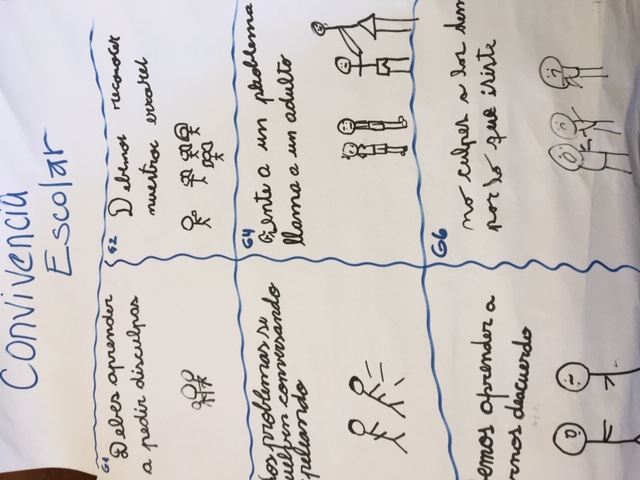 Convivencia
Escolar
G1
Debes aprender
a pedir disculpas
G2
Debemos reconocer
nuestros errores
los problemas se
conversando
peleando
G4
Frente a un problema
llama a un adulto
aprender a
G6
no culpes a los
por lo que